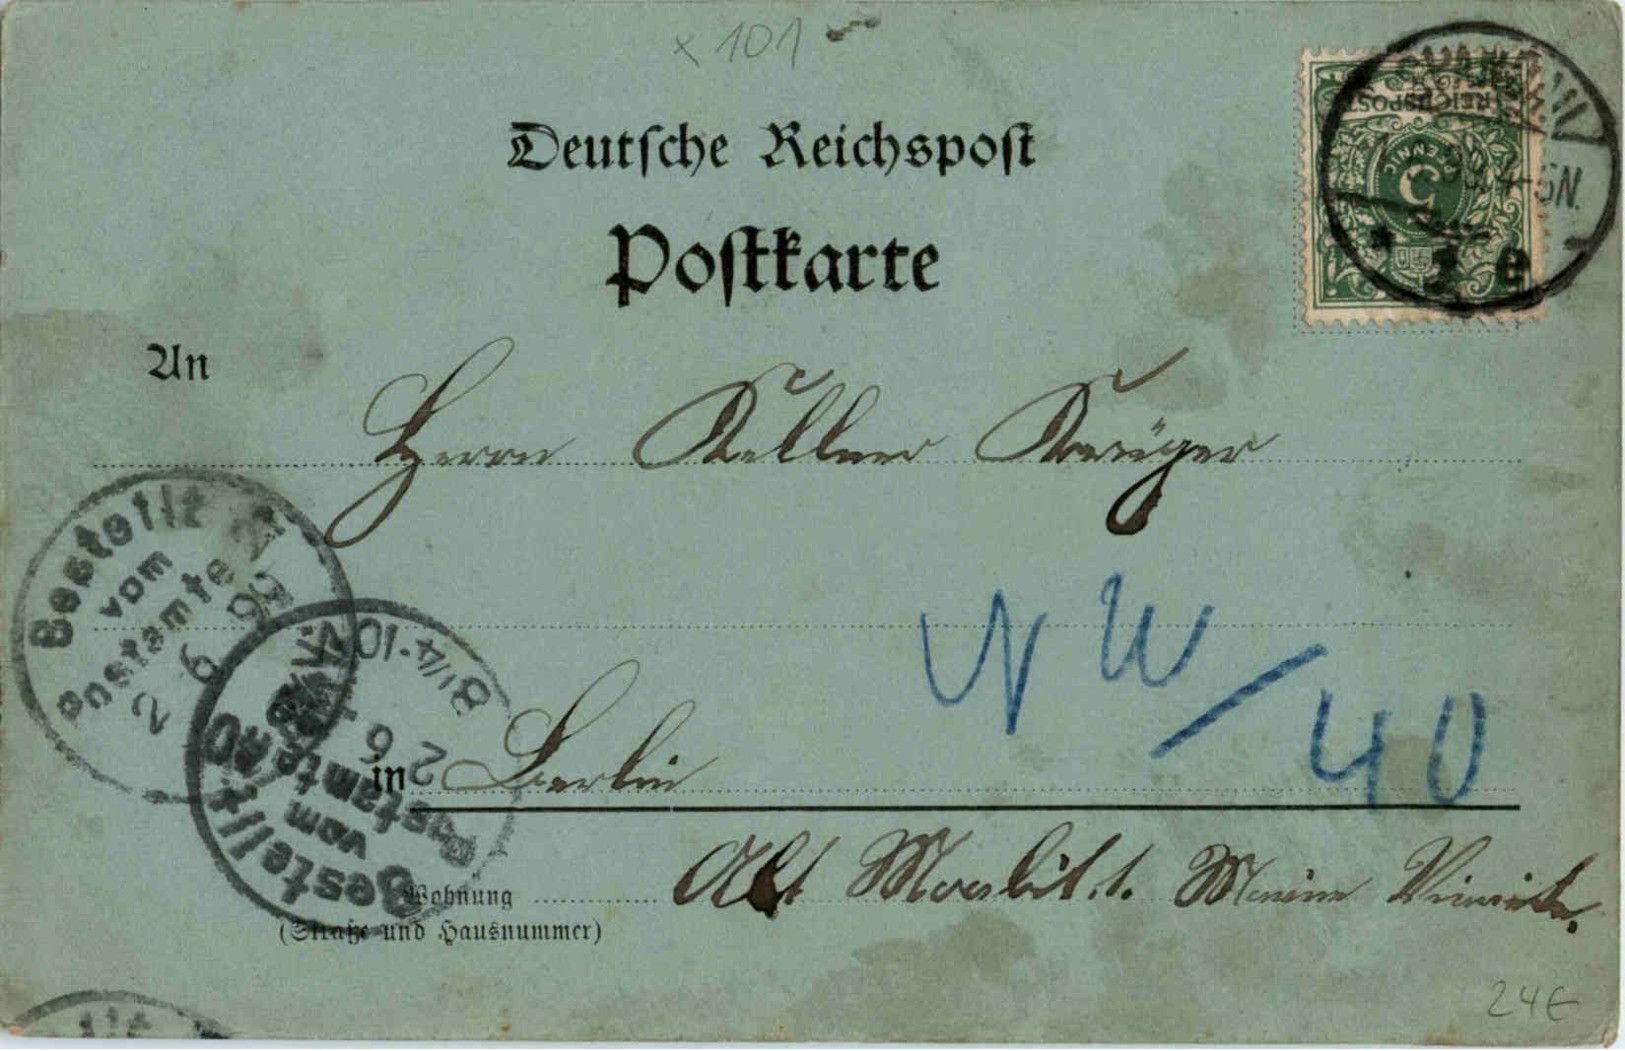 x 101
Deutsche Reichspost
Postkarte
REICHSPOST
PFENNIG
5
5N.
An
Herrn Kellner Krüger
Bestellt
vom
Postamte
2 6
NW/40
8¼-10
2 6
in Berlin
Bestellt
vom
Postamte 40
Wohnung Alt Moabit 1.
(Straße und Hausnummer)
24€